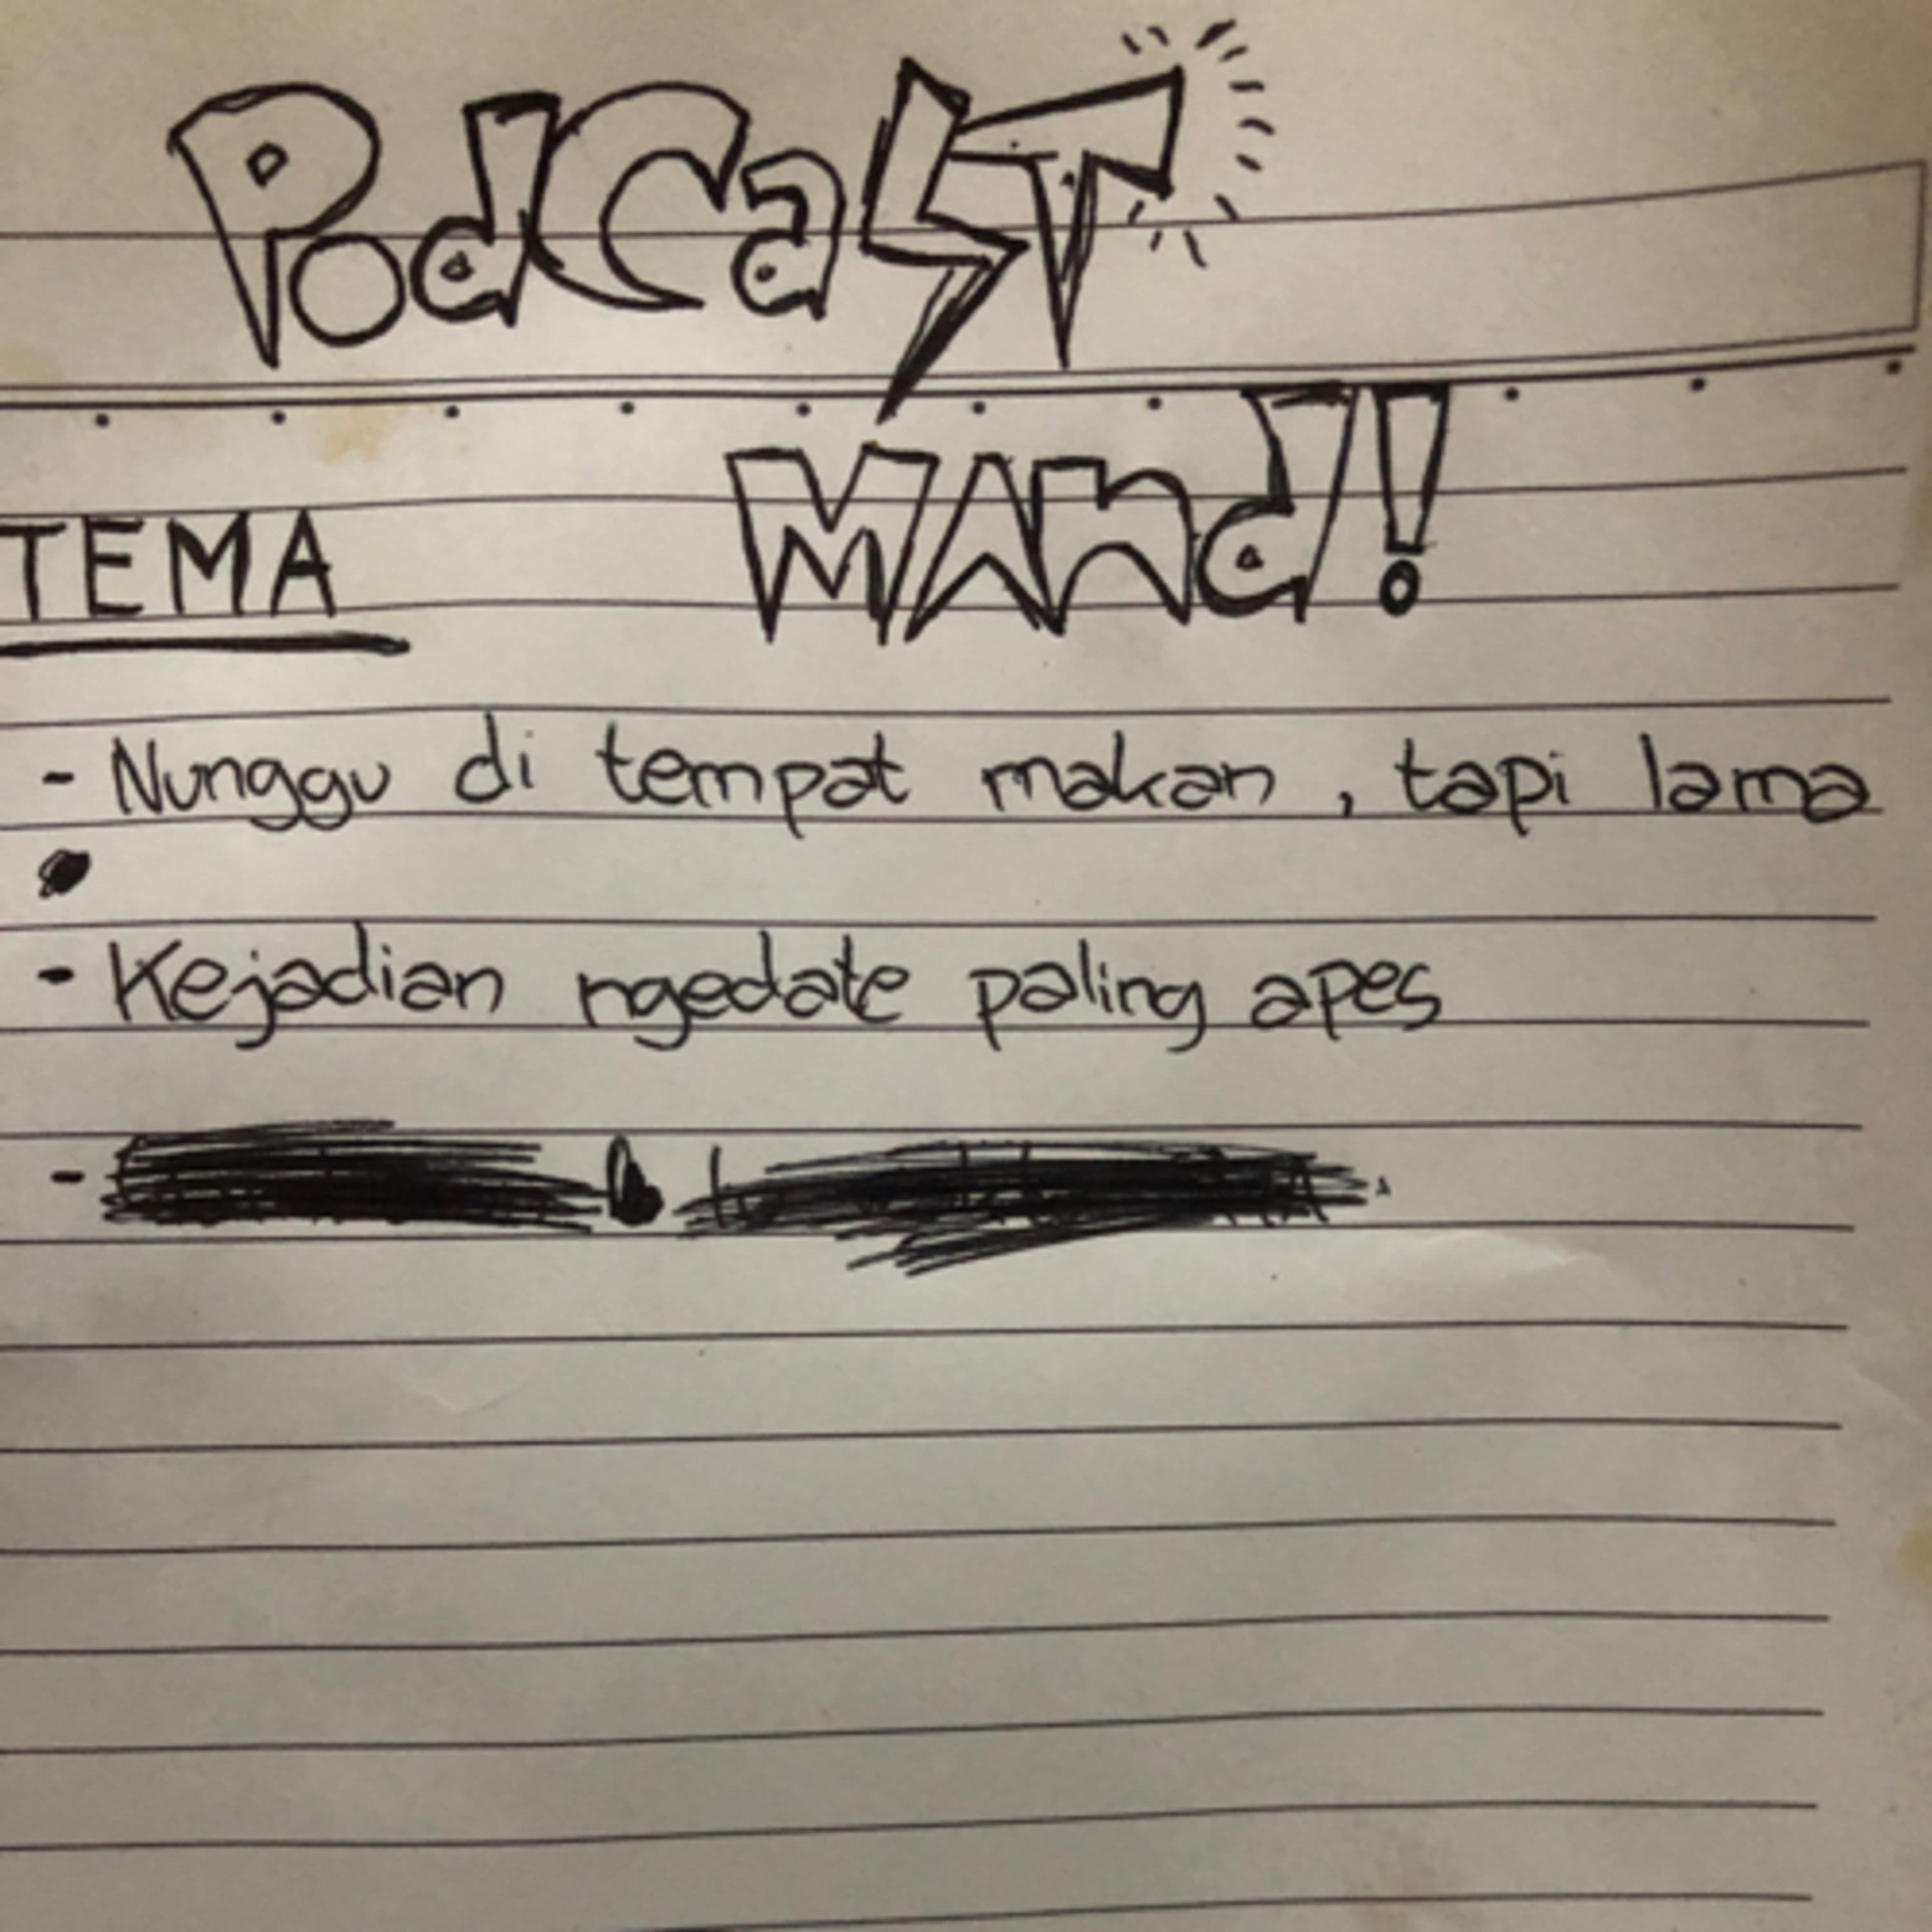 PodCasT
MAnd!
TEMA
- Nunggu di tempat makan, tapi lama
- Kejadian ngedate paling apes
-